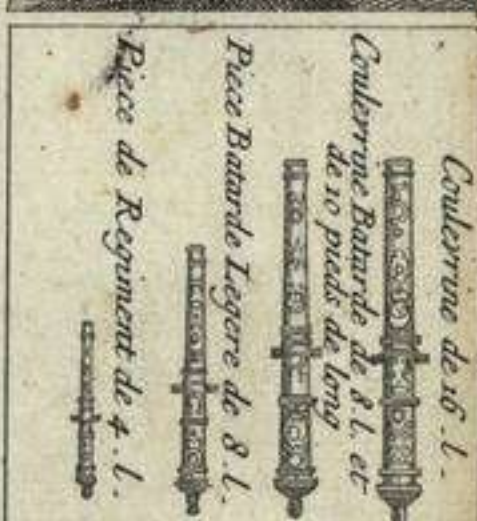 Coulevrine de 16. l.
Coulevrine Batarde de 8. l. et
de 10 pieds de long
Piece Batarde Legere de 8. l.
Piece de Regiment de 4. l.